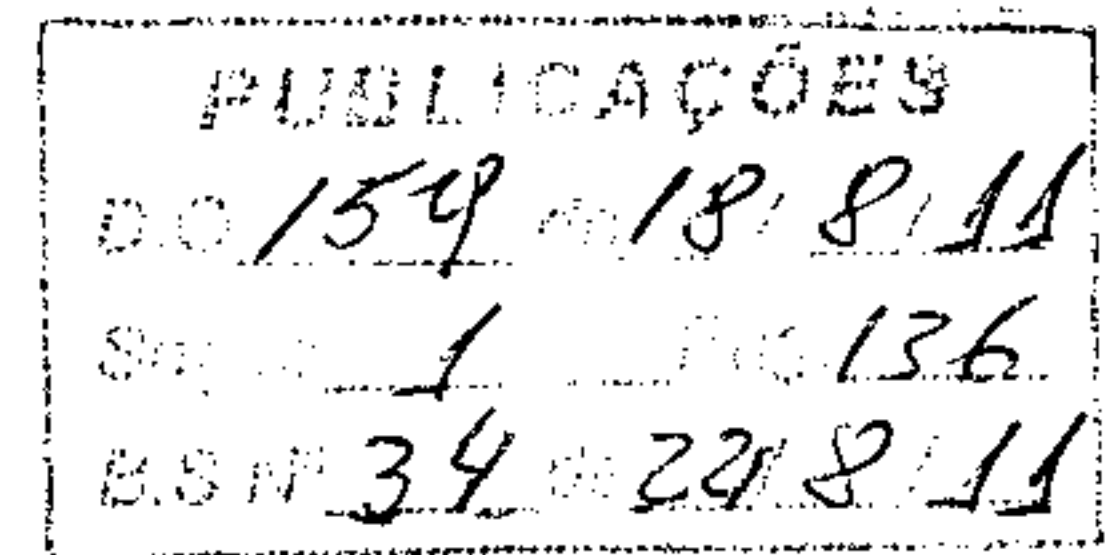 PUBLICAÇÕES
D.O 159 de 18/ 8 / 11
Seção 1 Pág. 136
B.S Nº 34 de 22/ 8 / 11